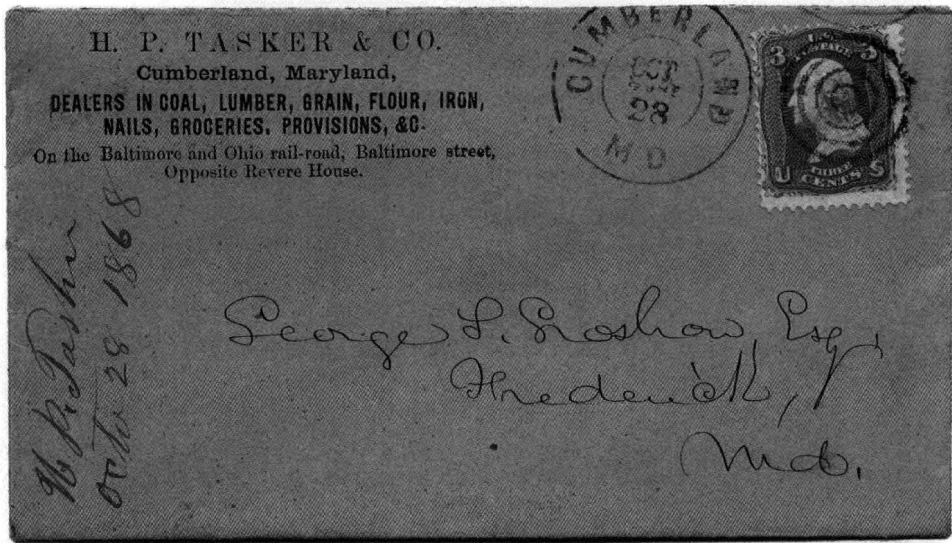 H. P. TASKER & CO.
Cumberland, Maryland,
DEALERS IN COAL, LUMBER, GRAIN, FLOUR, IRON,
NAILS, GROCERIES, PROVISIONS, &C.
On the Baltimore and Ohio rail-road, Baltimore street,
Opposite Revere House.
CUMBERLAND
OCT
28
MD
3 U.S. 3
POSTAGE
THREE
U CENTS S
H. P. Tasker
Octo 28 1868
George L. Groshow, Esq,
Frederick,
Md.